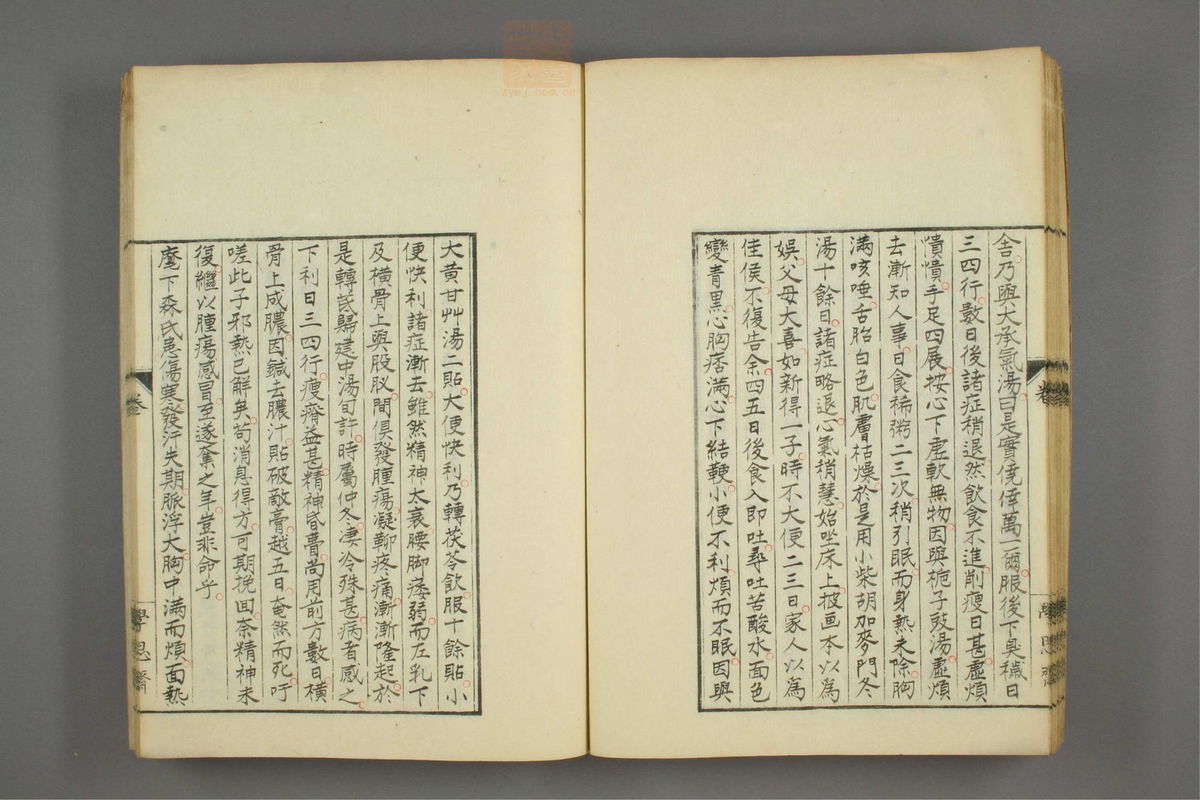 舎乃與大承氣湯曰是實僥倖萬一爾服後下臭穢日
三四行數日後諸症稍退然飲食不進削瘦日甚虛煩
憒憒手足四展按心下虛軟無物因與梔子豉湯虛煩
去漸知人事日食稀粥二三次稍引眠而身熱未除胸
滿咳唾舌胎白色肌膚枯燥於是用小柴胡加麥門冬
湯十餘日諸症略退心氣稍慧始坐床上披画本以為
娯父母大喜如新得一子時不大便二三日家人以為
佳侯不復告余四五日後食入即吐尋吐苦酸水面色
變青黒心胸痞滿心下結鞕小便不利煩而不眠因與
大黃甘艸湯二貼大便快利乃轉茯苓飲服十餘貼小
便快利諸症漸去雖然精神太衰腰脚痿弱而左乳下
及橫骨上與股肞間俱發腫瘍凝鞕疼痛漸漸隆起於
是轉耆歸建中湯旬許時屬仲冬凄冷殊甚病者感之
下利日三四行瘦瘠益甚精神昏瞢尚用前方數日橫
骨上成膿因鍼去膿汁貼破敵膏越五日奄然而死吁
嗟此子邪熱已解矣苟消息得方可期挽回奈精神未
復繼以腫瘍感冒至遂奪之年豈非命乎
麾下森氏患傷寒發汗失期脈浮大胸中滿而煩面熱
卷
學思齋